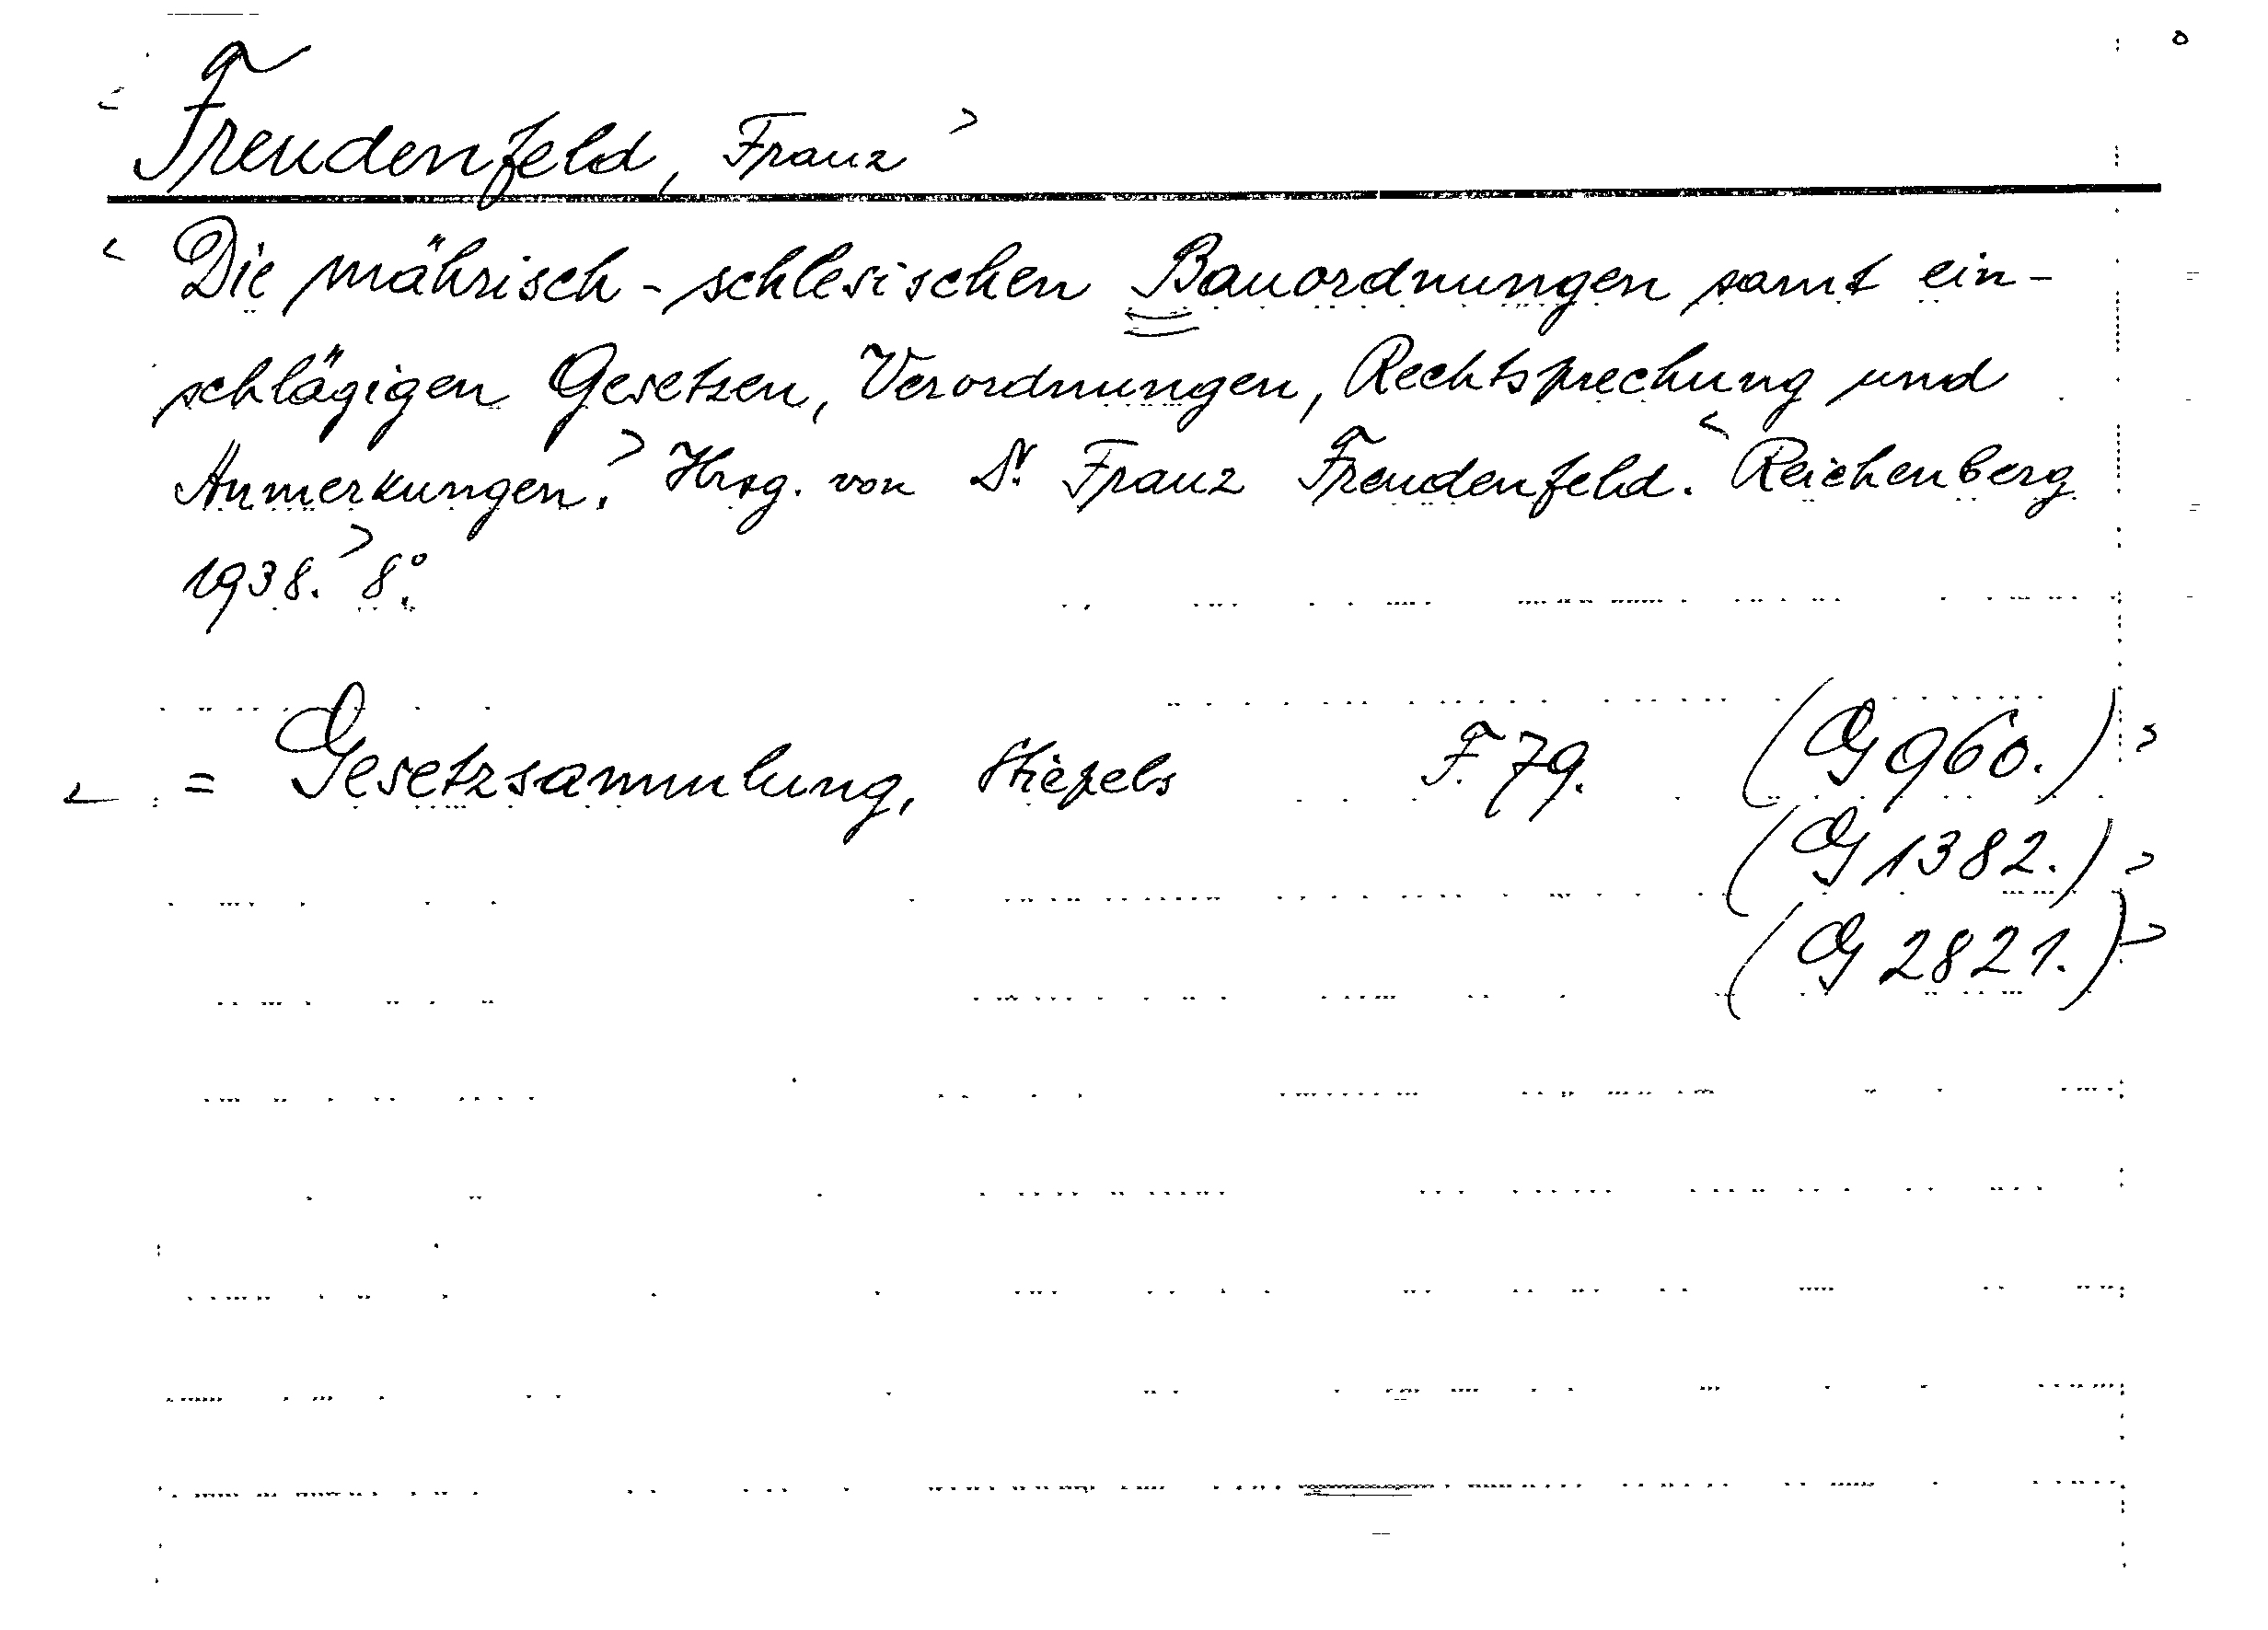 Freudenfeld, Franz
Die mährisch-schlesischen Bauordnungen samt ein-
schlägigen Gesetzen, Verordnungen, Rechtsprechung und
Anmerkungen. Hrsg. von Dr. Franz Freudenfeld. Reichenberg
1938. 8°.
= Gesetzsammlung, Stiepels F. 79. (G 960.)
(G 1382.)
(G 2821.)